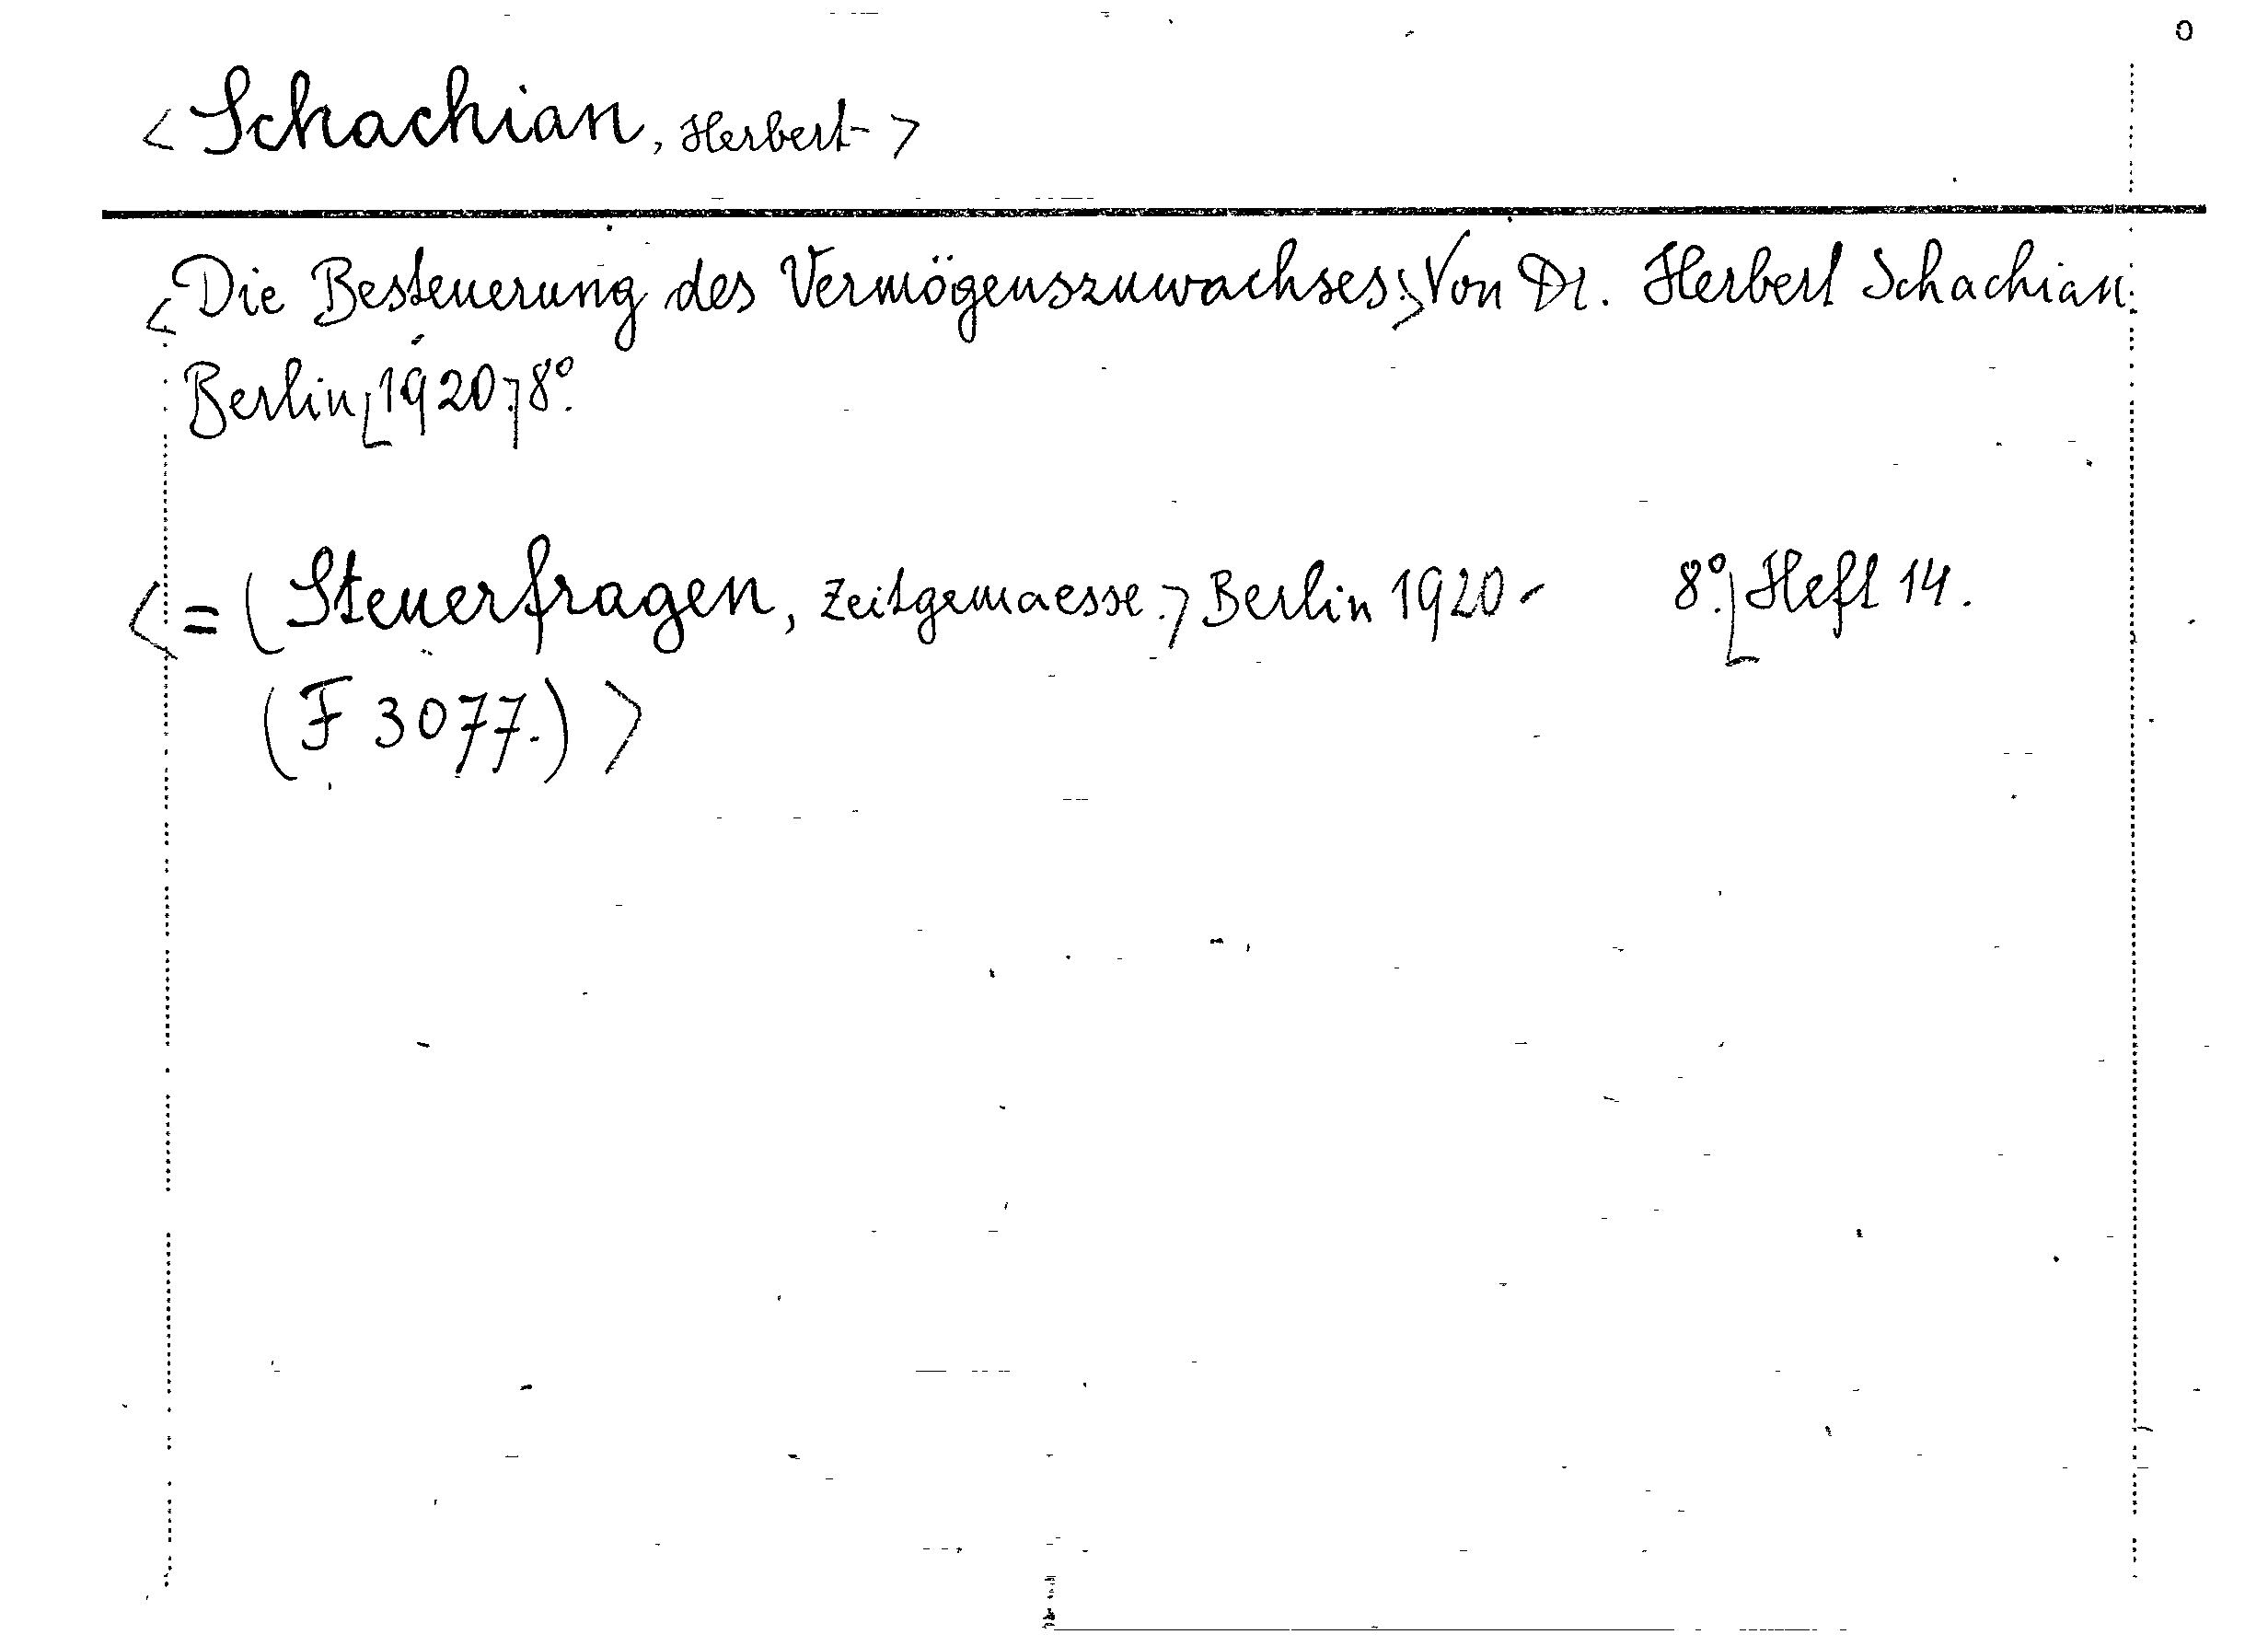 0
<Schachian, Herbert>
<Die Besteuerung des Vermögenszuwachses.> Von Dr. Herbert Schachian.
Berlin [1920.] 8°.
<= (Steuerfragen, Zeitgemaesse.] Berlin 1920- 8°. [Heft 14.
(F 3077.)>